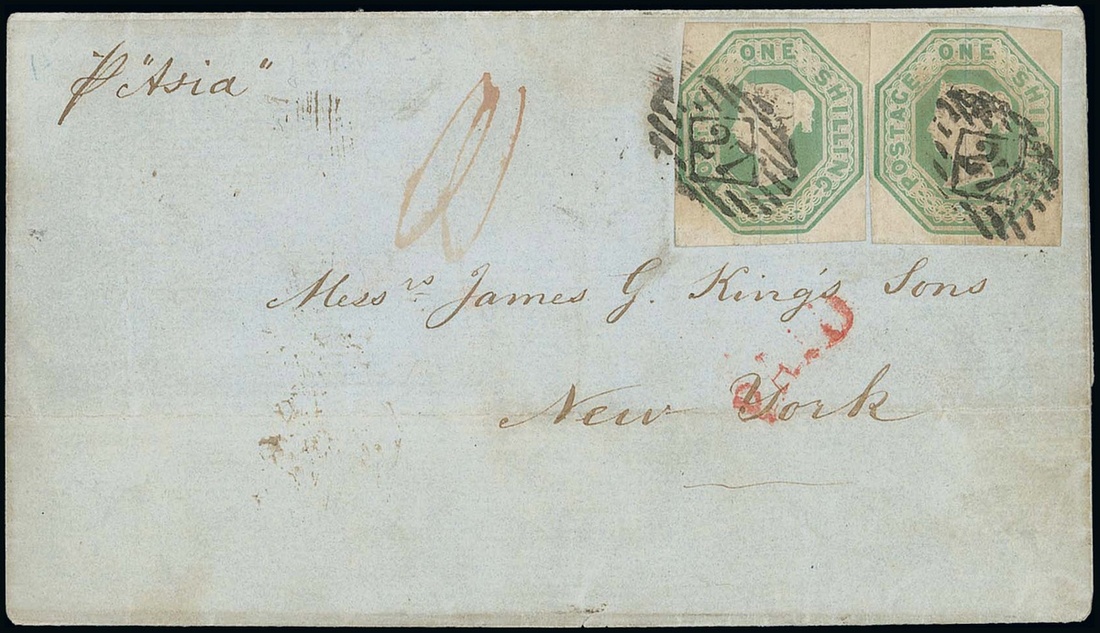 p "Asia"
ONE SHILLING
POSTAGE ONE SHI
Mess rs James G. King's Sons
New York